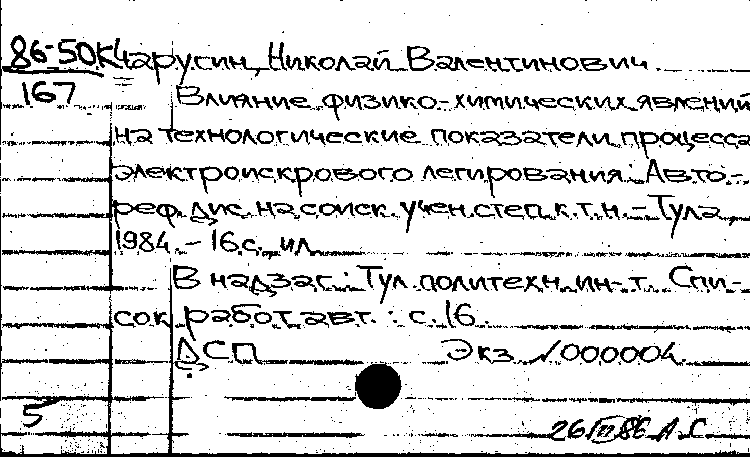 86-50К Чарусин, Николай Валентинович.
167 Влияние физико-химических явлений
на технологические показатели процесса
электроискрового легирования : Авто-
реф. дис. на соиск. учен. степ. к.т.н. - Тула,
1984. - 16с., ил.
В надзаг.: Тул. политехн. ин-т. Спи-
сок работ авт. : с. 16.
ДСП Экз. №000004.
5
26/III 86 А.С.